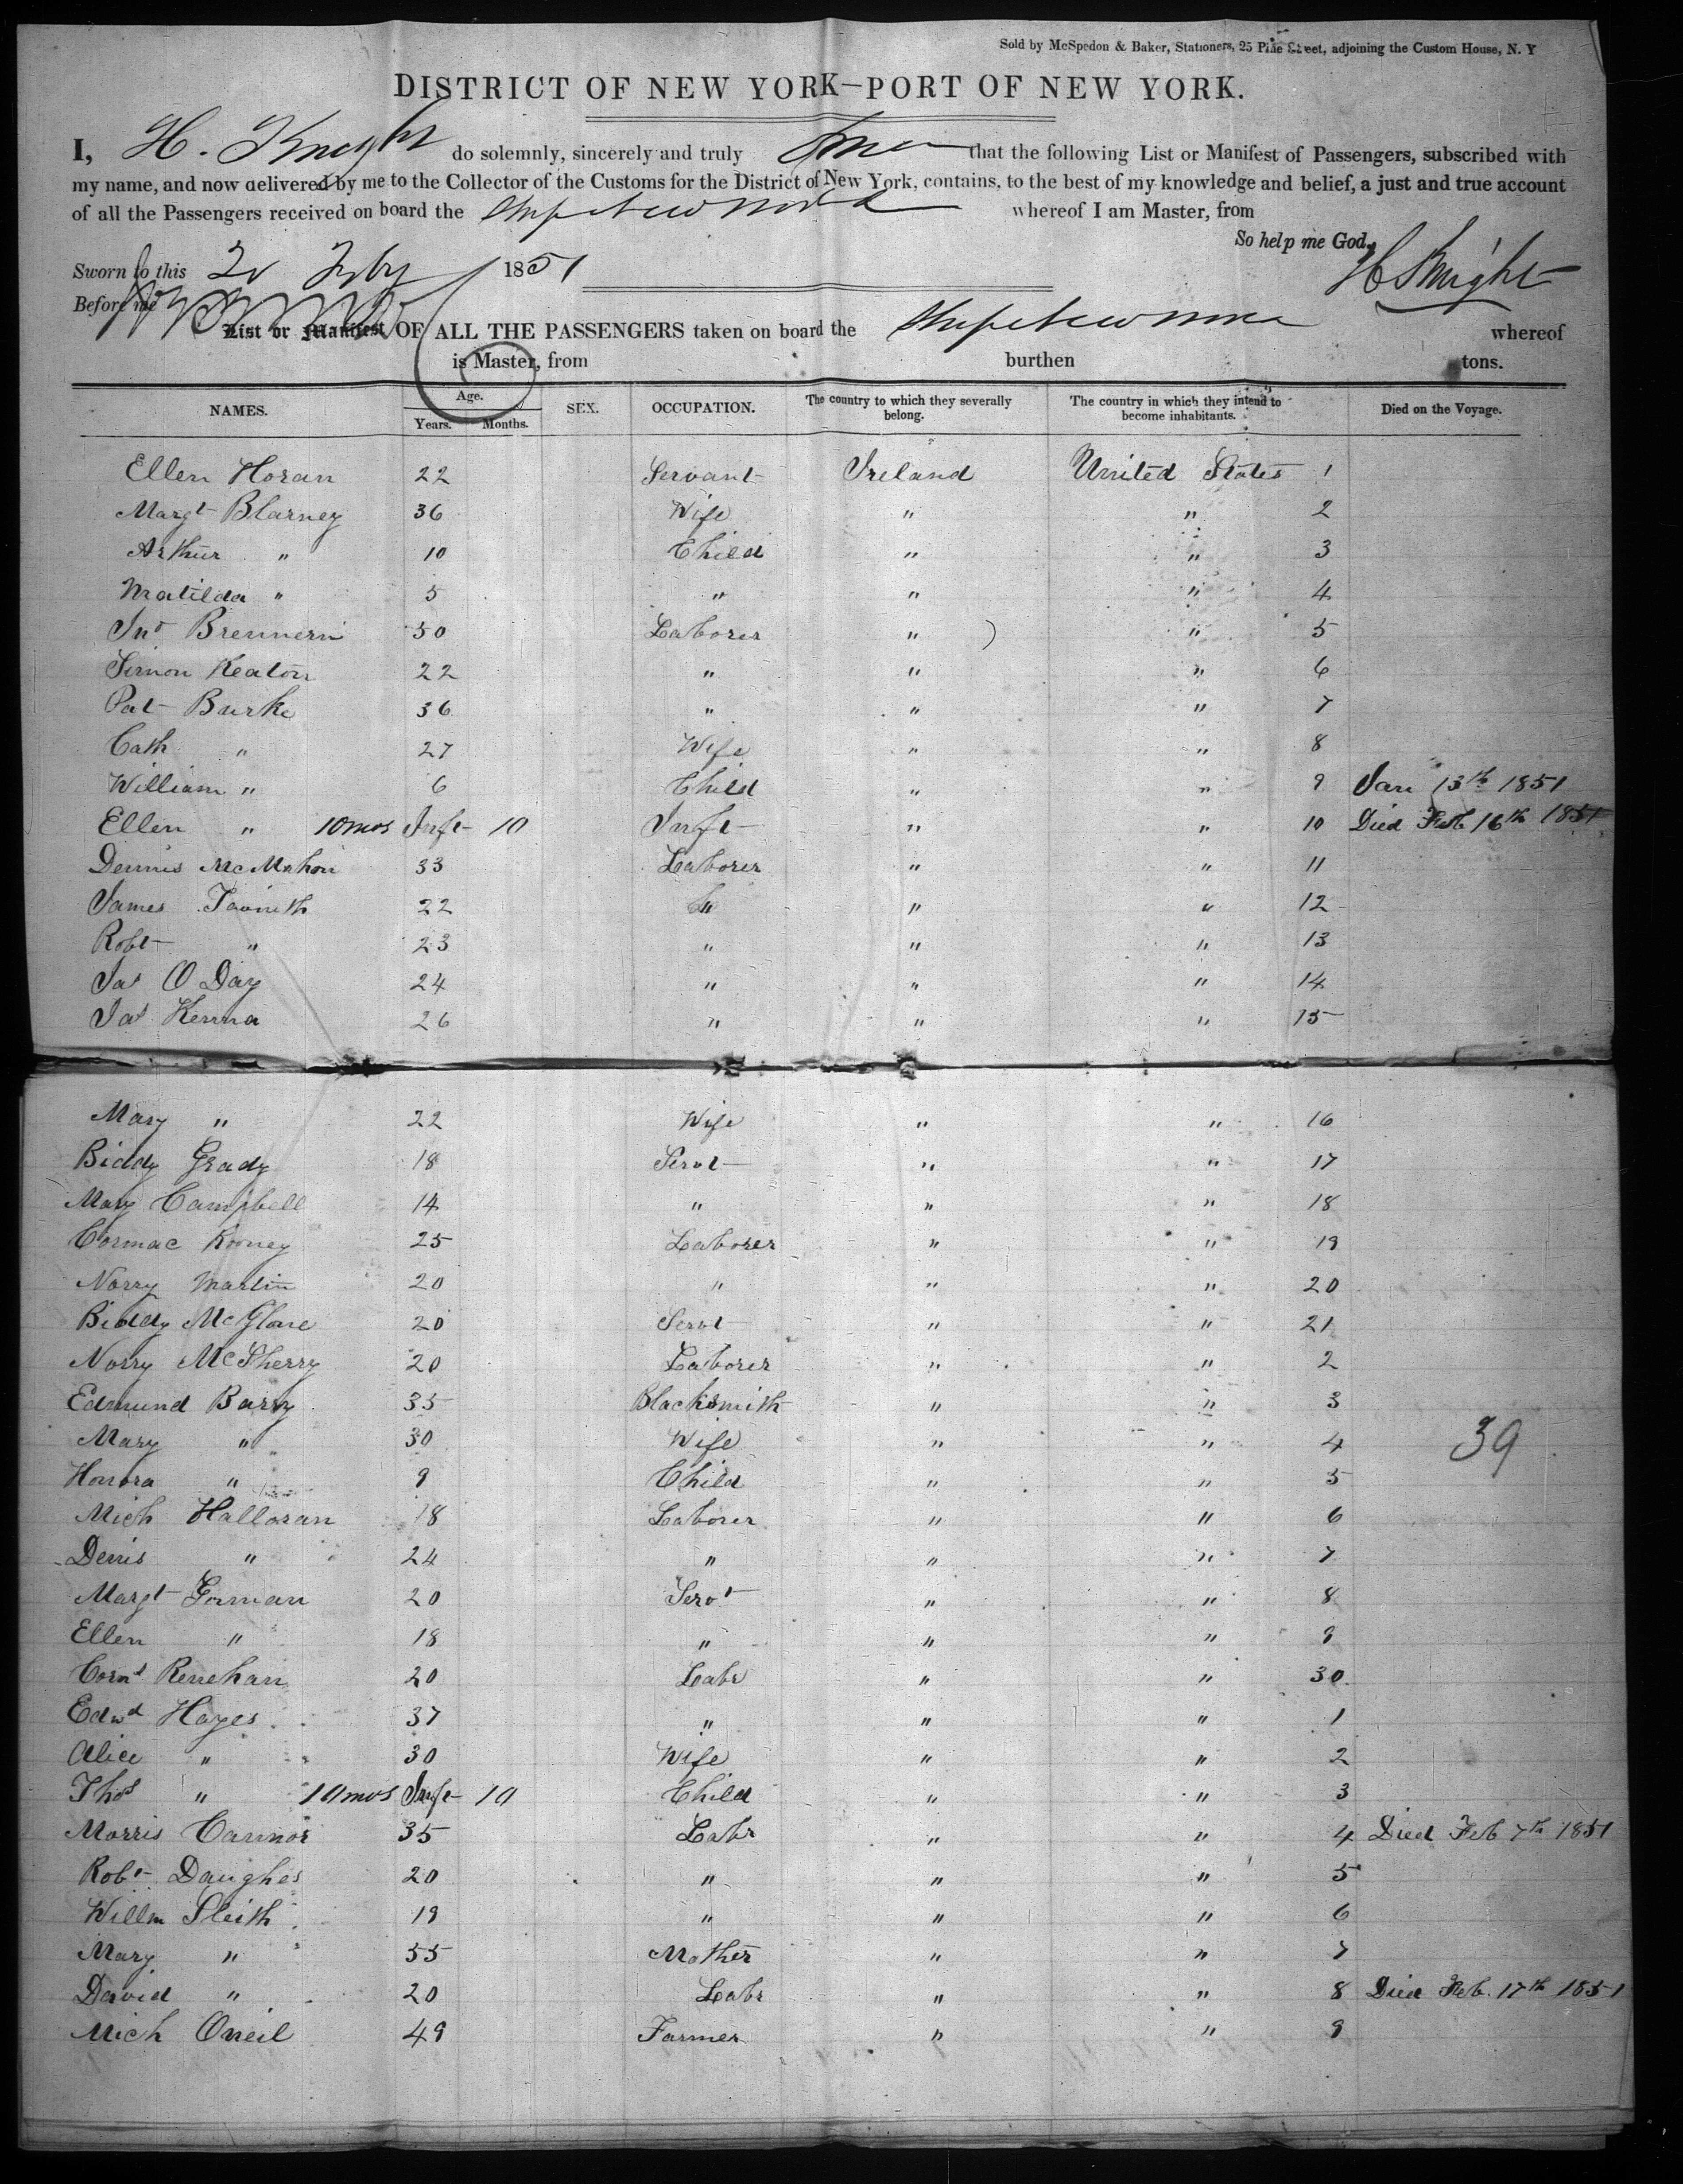 Sold by McSpedon & Baker, Stationers, 25 Pine Street, adjoining the Custom House, N. Y
DISTRICT OF NEW YORK—PORT OF NEW YORK.
I, H. Knight do solemnly, sincerely and truly that the following List or Manifest of Passengers, subscribed with
my name, and now delivered by me to the Collector of the Customs for the District of New York, contains, to the best of my knowledge and belief, a just and true account
of all the Passengers received on board the whereof I am Master, from
So help me God.
H Knight
Sworn to this 20 Feby 1851
Before me
List or Manifest OF ALL THE PASSENGERS taken on board the whereof
is Master, from burthen tons.
NAMES. Age. Years. Months. SEX. OCCUPATION. The country to which they severally belong. The country in which they intend to become inhabitants. Died on the Voyage.
Ellen Horan 22 Servant Ireland United States 1
Margt Blarney 36 Wife " " 2
Arthur " 10 Child " " 3
Matilda " 5 " " " 4
Jno Brennern 50 Laborer " " 5
Simon Keaton 22 " " " 6
Pat Burke 36 " " " 7
Cath " 27 Wife " " 8
William " 6 Child " " 9 Jan 13th 1851
Ellen " 10mos Inft 10 Inft " " 10 Died Feb 16th 1851
Dennis McMahon 33 Laborer " " 11
James 22 " " " 12
Robt " 23 " " " 13
Jas O Day 24 " " " 14
Jas Kenna 26 " " " 15
Mary " 22 Wife " " 16
Biddy Grady 18 Servt " " 17
Mary Campbell 14 " " " 18
Cormac Rooney 25 Laborer " " 19
Norry Martin 20 " " " 20
Biddy McGlone 20 Servt " " 21
Norry McSherry 20 Laborer " " 2
Edmund Barry 35 Blacksmith " " 3
Mary " 30 Wife " " 4 39
Honora " 9 Child " " 5
Mich Halloran 18 Laborer " " 6
Denis " 24 " " " 7
Margt Gorman 20 Servt " " 8
Ellen " 18 " " " 9
Corns Renehan 20 Labr " " 30
Edwd Hayes 37 " " " 1
Alice " 30 Wife " " 2
Thos " 10mos Inft 10 Child " " 3
Morris Connor 35 Labr " " 4 Died Feb 7th 1851
Robt Daughes 20 " " " 5
Willm Sleith 19 " " " 6
Mary " 55 Mother " " 7
David " 20 Labr " " 8 Died Feb. 17th 1851
Mich Oneil 49 Farmer " " 9